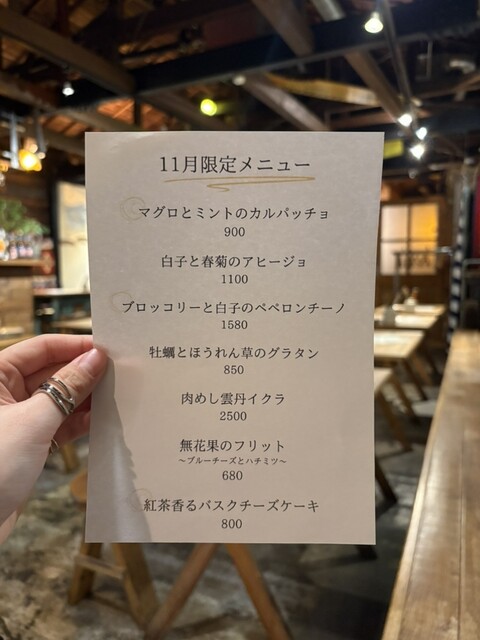 11月限定メニュー
マグロとミントのカルパッチョ
900
白子と春菊のアヒージョ
1100
ブロッコリーと白子のペペロンチーノ
1580
牡蠣とほうれん草のグラタン
850
肉めし雲丹イクラ
2500
無花果のフリット
〜ブルーチーズとハチミツ〜
680
紅茶香るバスクチーズケーキ
800